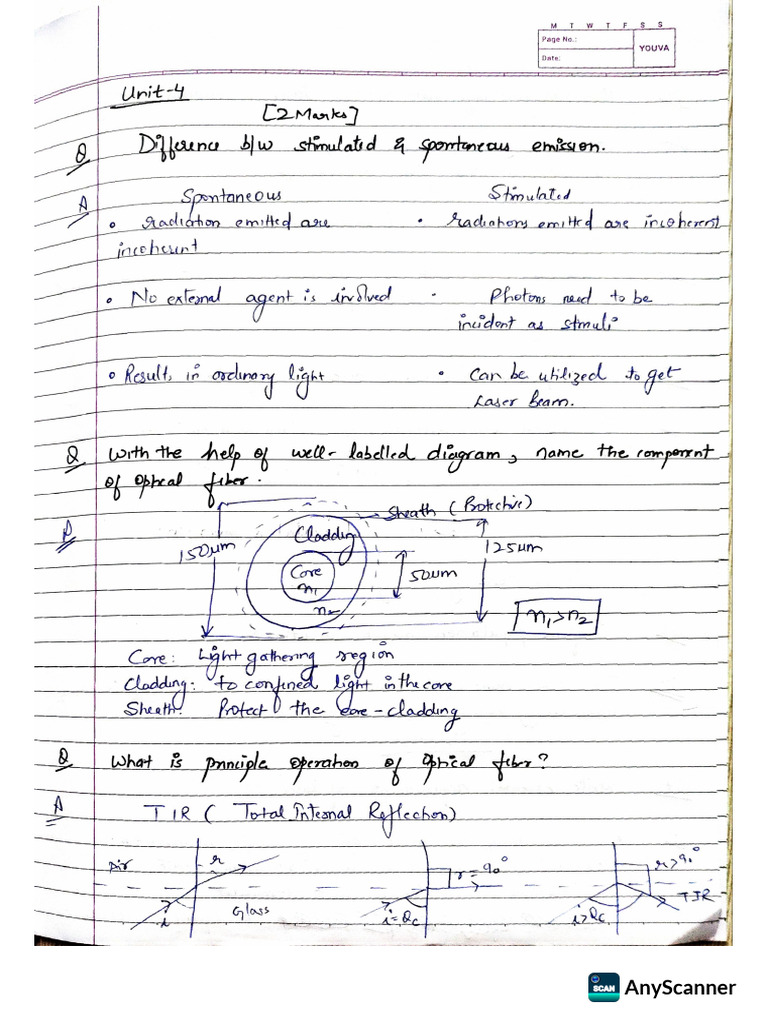 M T W T F S S
Page No.:
YOUVA
Date:
Unit-4
[2 Marks]
Q Difference b/w stimulated & spontaneous emission.
A Spontaneous Stimulated
• radiation emitted are • radiations emitted are incoherent
incoherent
• No external agent is involved • Photons need to be
incident as stimuli
• Results in ordinary light • Can be utilized to get
Laser Beam.
Q With the help of well-labelled diagram, name the component
of optical fiber.
A
Sheath (Protective)
Cladding
150um
125um
Core
n1
50um
n2
n1>n2
Core: Light gathering region
Cladding: to confined light in the core
Sheath: Protect the core-cladding
Q What is principle operation of optical fiber?
A TIR (Total Internal Reflection)
Air r r=90° r>90°
Glass TIR
i i=Qc i>Qc
SCAN AnyScanner